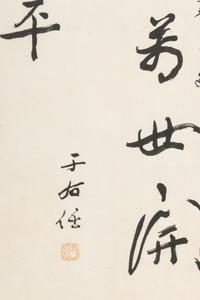 萬世開
平
于右任